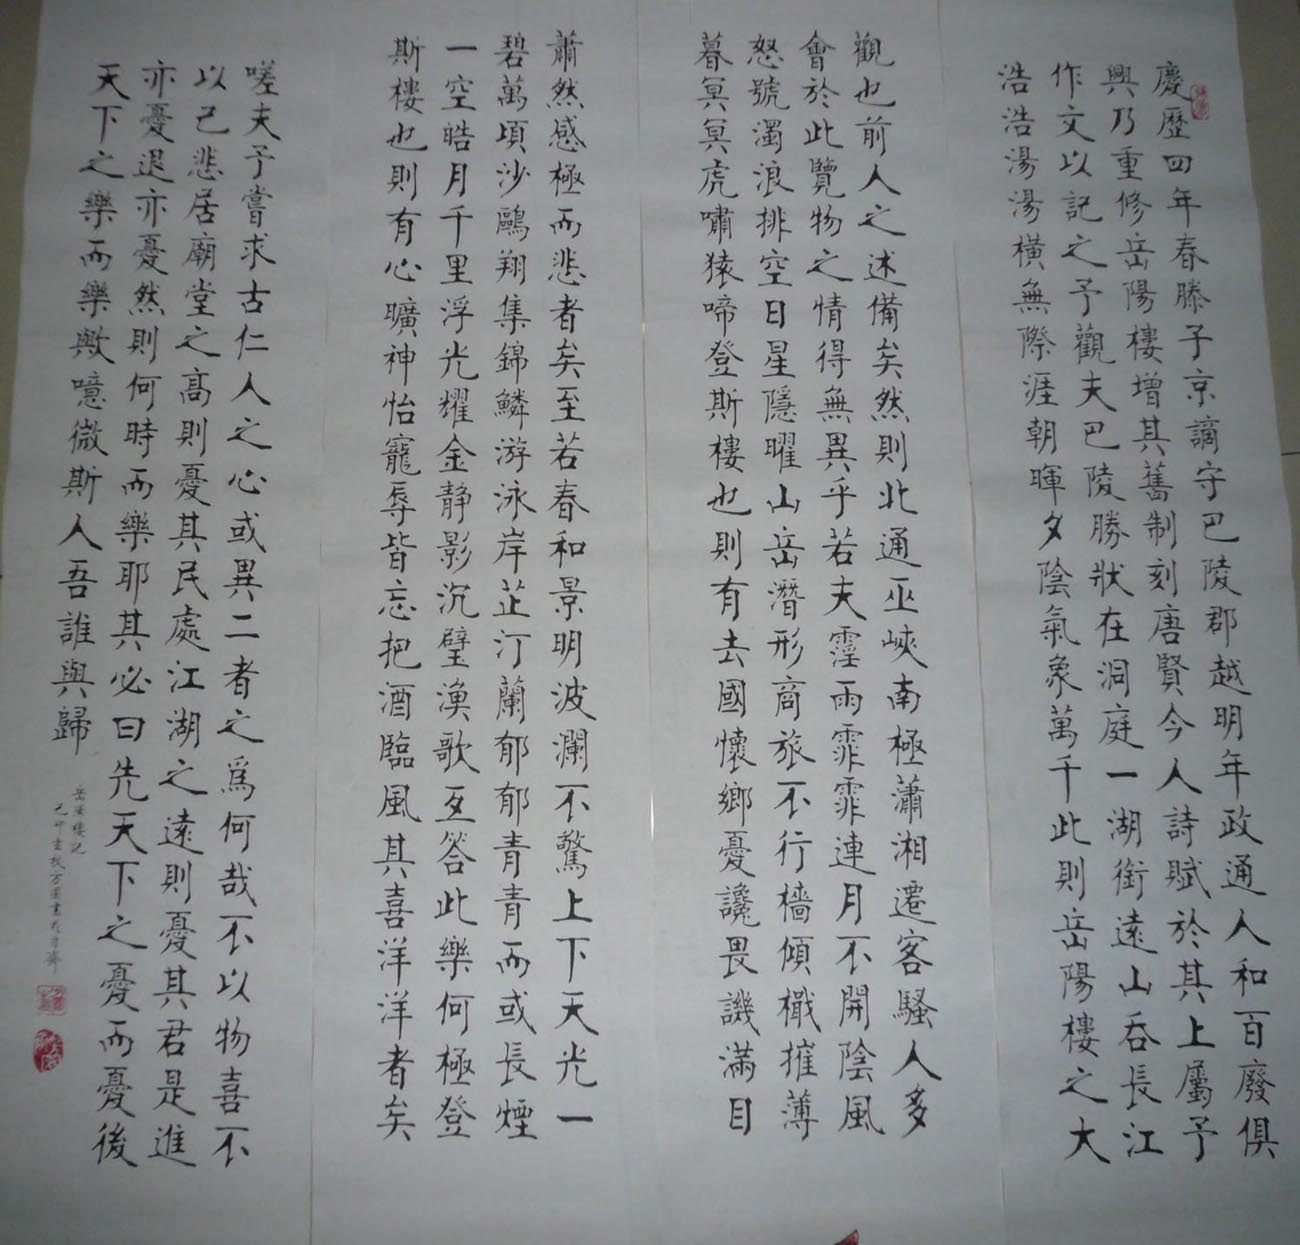 慶歷四年春滕子京謫守巴陵郡越明年政通人和百廢俱
興乃重修岳陽樓增其舊制刻唐賢今人詩賦於其上屬予
作文以記之予觀夫巴陵勝狀在洞庭一湖銜遠山吞長江
浩浩湯湯橫無際涯朝暉夕陰氣象萬千此則岳陽樓之大
觀也前人之述備矣然則北通巫峽南極瀟湘遷客騷人多
會於此覽物之情得無異乎若夫霪雨霏霏連月不開陰風
怒號濁浪排空日星隱曜山岳潛形商旅不行檣傾檝摧薄
暮冥冥虎嘯猿啼登斯樓也則有去國懷鄉憂讒畏譏滿目
蕭然感極而悲者矣至若春和景明波瀾不驚上下天光一
碧萬頃沙鷗翔集錦鱗游泳岸芷汀蘭郁郁青青而或長煙
一空皓月千里浮光耀金静影沉璧漁歌互答此樂何極登
斯樓也則有心曠神怡寵辱皆忘把酒臨風其喜洋洋者矣
嗟夫予嘗求古仁人之心或異二者之爲何哉不以物喜不
以己悲居廟堂之高則憂其民處江湖之遠則憂其君是進
亦憂退亦憂然則何時而樂耶其必曰先天下之憂而憂後
天下之樂而樂歟噫微斯人吾誰與歸
岳陽樓記